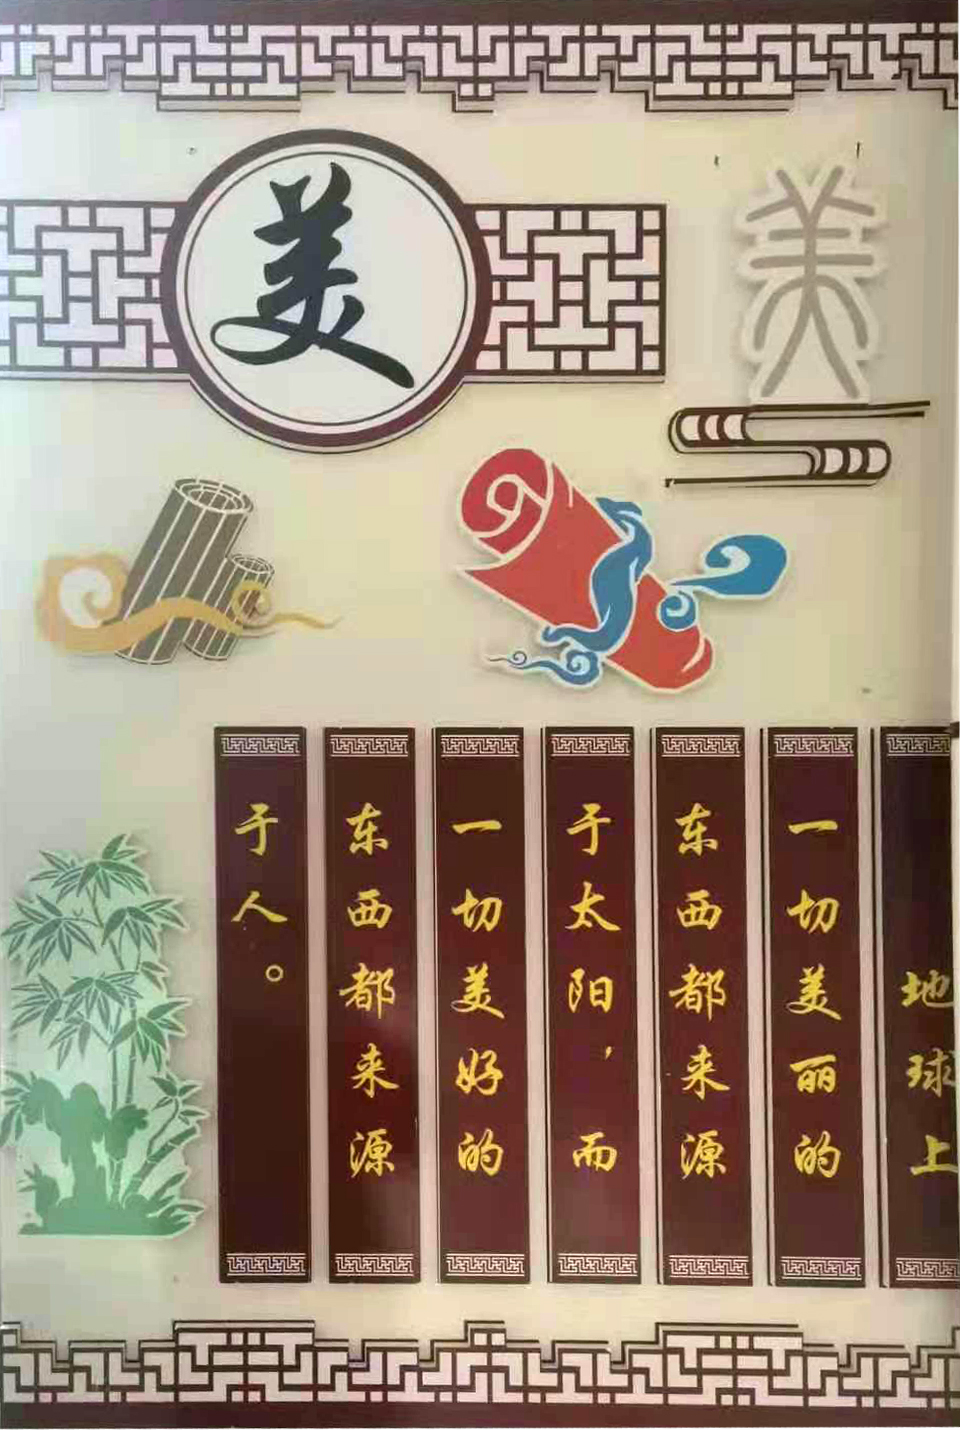 美
美
地球上
一切美丽的
东西都来源
于太阳，而
一切美好的
东西都来源
于人。